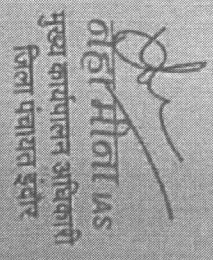 नेहा मीना IAS
मुख्य कार्यपालन अधिकारी
जिला पंचायत इंदौर